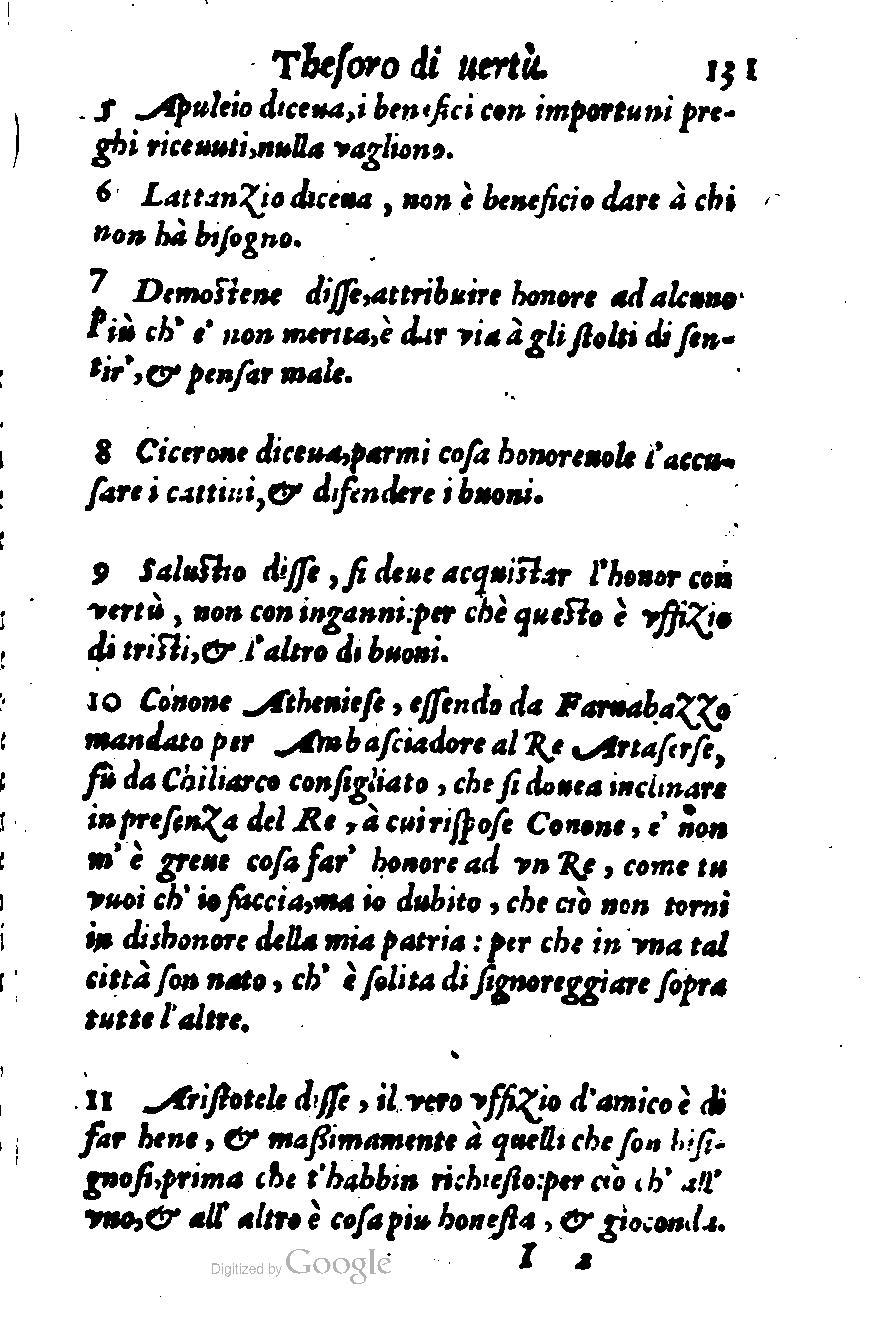 Theſoro di uertù. 131
5 Apuleio diceua, i benefici con importuni pre-
ghi riceuuti, nulla vagliono.
6 Lattanzio diceua , non è beneficio dare à chi
non hà biſogno.
7 Demoſtene diſſe, attribuire honore ad alcuno
Più ch' e' non merita, è dar via à gli ſtolti di ſen-
tir', & penſar male.
8 Cicerone diceua, parmi coſa honoreuole l'accu-
ſare i cattiui, & difendere i buoni.
9 Saluſtio diſſe , ſi deue acquiſtar l'honor con
vertù , non con inganni: per chè queſto è vffizio
di triſti, & l'altro di buoni.
10 Conone Athenieſe , eſſendo da Farnabazzo
mandato per Ambaſciadore al Re Artaſerſe,
fù da Chiliarco conſigliato , che ſi douea inclinare
in preſenza del Re , à cui riſpoſe Conone , e' non
m' è greue coſa far' honore ad vn Re , come tu
vuoi ch' io faccia, ma io dubito , che ciò non torni
in dishonore della mia patria : per che in vna tal
città ſon nato , ch' è ſolita di ſignoreggiare ſopra
tutte l'altre.
11 Ariſtotele diſſe , il vero vffizio d'amico è di
far bene , & maßimamente à quelli che ſon biſi-
gnoſi, prima che t'habbin richieſto: per ciò ch' all'
vno, & all' altro è coſa piu honeſta , & gioconda.
I 2
Digitized by Google